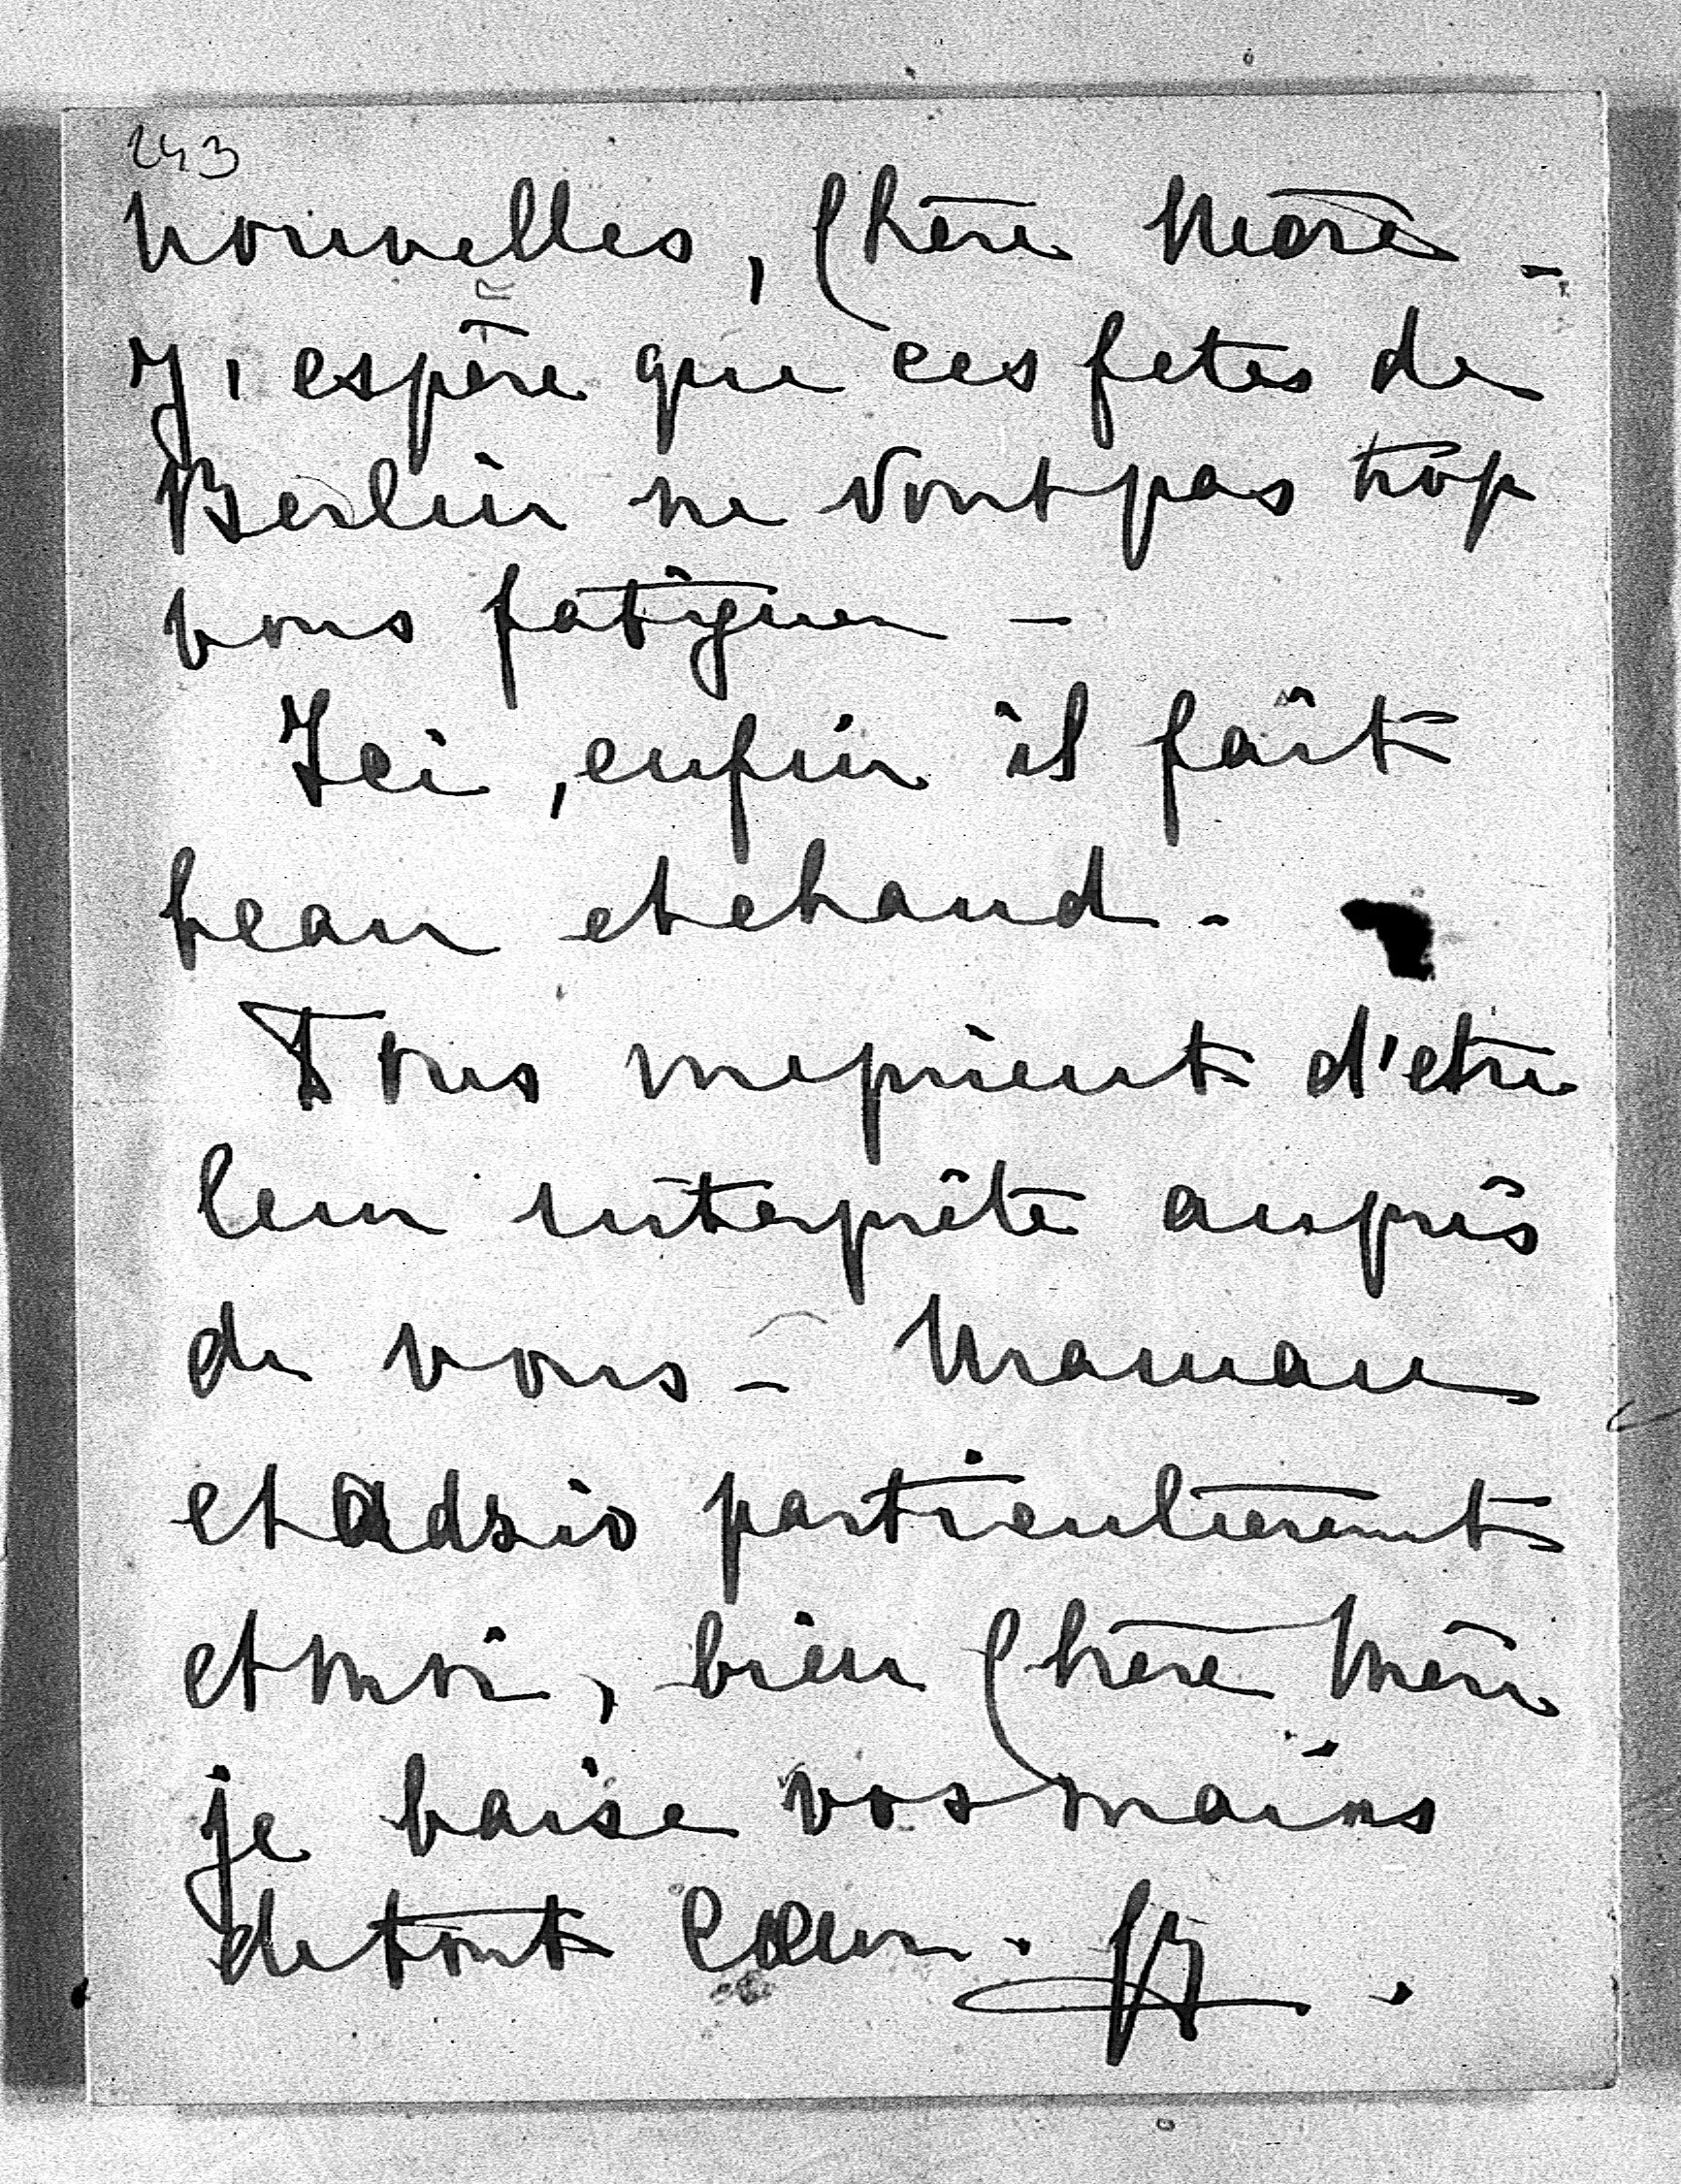 243
Nouvelles, Chère Mère -
J'espère que ces fetes de
Berlin ne vont pas trop
vous fatiguer -
Ici, enfin il fait
beau et chaud -
Tous me prient d'etre
leur interprète auprès
de vous - Maman
et Adzio particulièrement
et moi, bien Chère Mère
je baise vos mains
de tout Cœur.